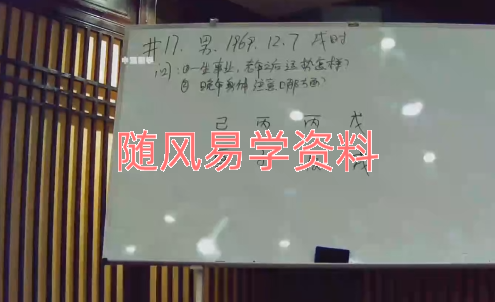 #17. 男. 1969. 12.7 戌时
问: ①一生事业, 老年之后运势怎样?
② 晚年身体注意哪方面?
己 丙 丙 戊
随风易学资料
戌